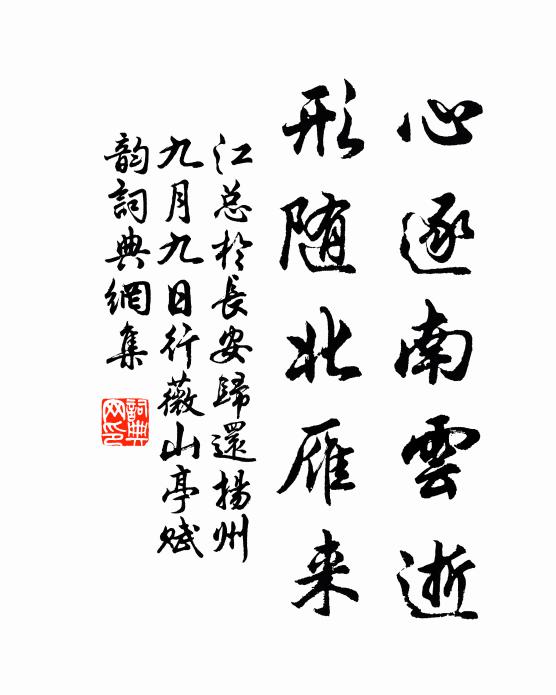 心逐南雲逝
形随北雁来
江总於長安歸還揚州
九月九日行薇山亭赋
韵詞典網集
詞典
网印